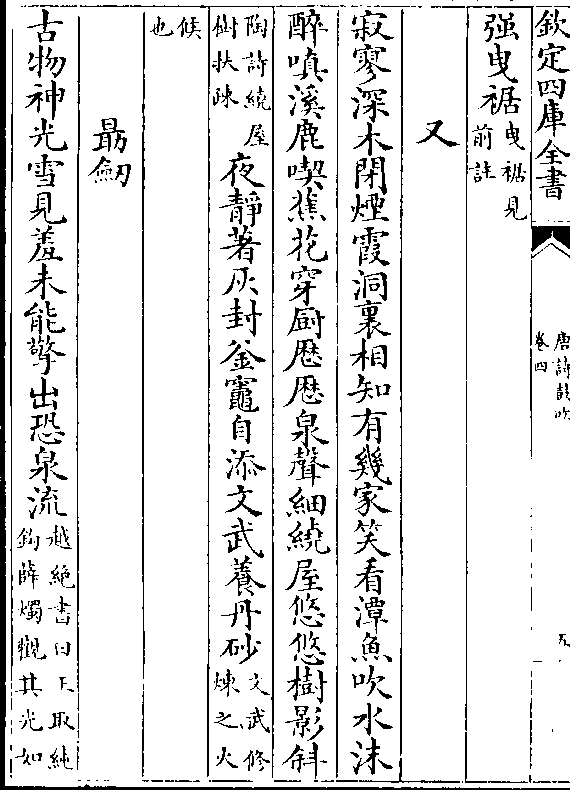 欽定四庫全書
唐詩鼓吹
卷四
五
强曳裾曳裾見前註
又
寂寥深木閉煙霞洞裏相知有幾家笑看潭魚吹水沫
醉嗔溪鹿喫蕉花穿厨歴歴泉聲細繞屋悠悠樹影斜
陶詩繞屋樹扶疎夜靜著灰封釜竈自添文武養丹砂文武修煉之火
候也
勗劒
古物神光雪見羞未能擎出恐泉流越絶書曰王取純鈎薛燭觀其光如